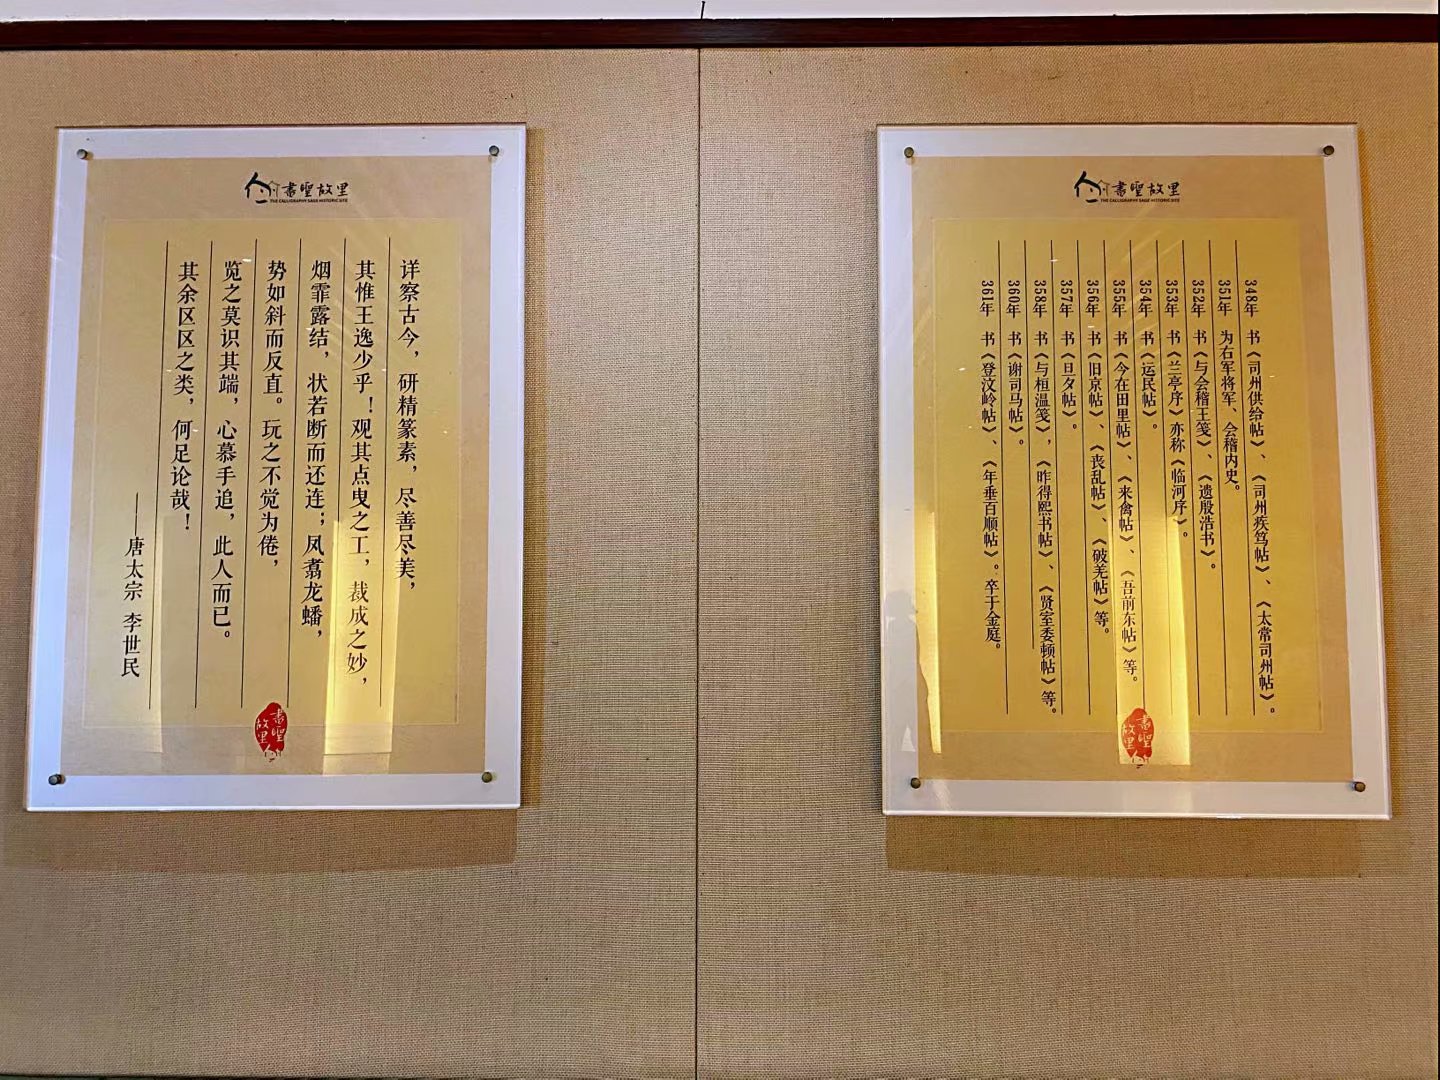 書聖故里
THE CALLIGRAPHY SAGE HISTORIC SITE
详察古今，研精篆素，尽善尽美，
其惟王逸少乎！观其点曳之工，裁成之妙，
烟霏露结，状若断而还连；凤翥龙蟠，
势如斜而反直。玩之不觉为倦，
览之莫识其端，心慕手追，此人而已。
其余区区之类，何足论哉！
——唐太宗 李世民
書聖
故里
書聖故里
THE CALLIGRAPHY SAGE HISTORIC SITE
348年 书《司州供给帖》、《司州疾笃帖》、《太常司州帖》。
351年 为右军将军、会稽内史。
352年 书《与会稽王笺》、《遗殷浩书》。
353年 书《兰亭序》亦称《临河序》。
354年 书《运民帖》。
355年 书《今在田里帖》、《来禽帖》、《吾前东帖》等。
356年 书《旧京帖》、《丧乱帖》、《破羌帖》等。
357年 书《旦夕帖》。
358年 书《与桓温笺》，《昨得熙书帖》、《贤室委顿帖》等。
360年 书《谢司马帖》。
361年 书《登汶岭帖》、《年垂百顺帖》。卒于金庭。
書聖
故里